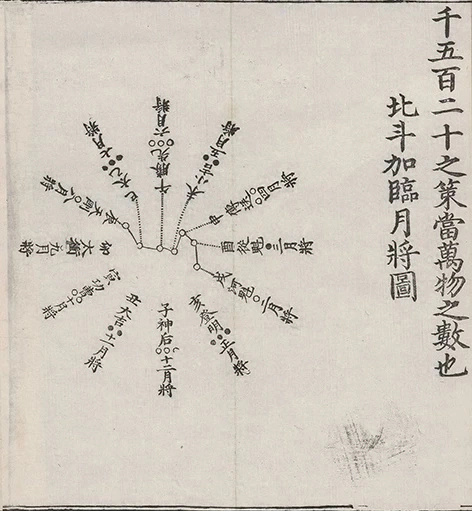 千五百二十之策當萬物之數也
北斗加臨月將圖
午勝先六月將
未小吉五月將
申傳送四月將
酉從魁三月將
戌河魁二月將
亥登明正月將
子神后十二月將
丑大吉十一月將
寅功曹十月將
卯太衝九月將
辰天罡八月將
巳太乙七月將